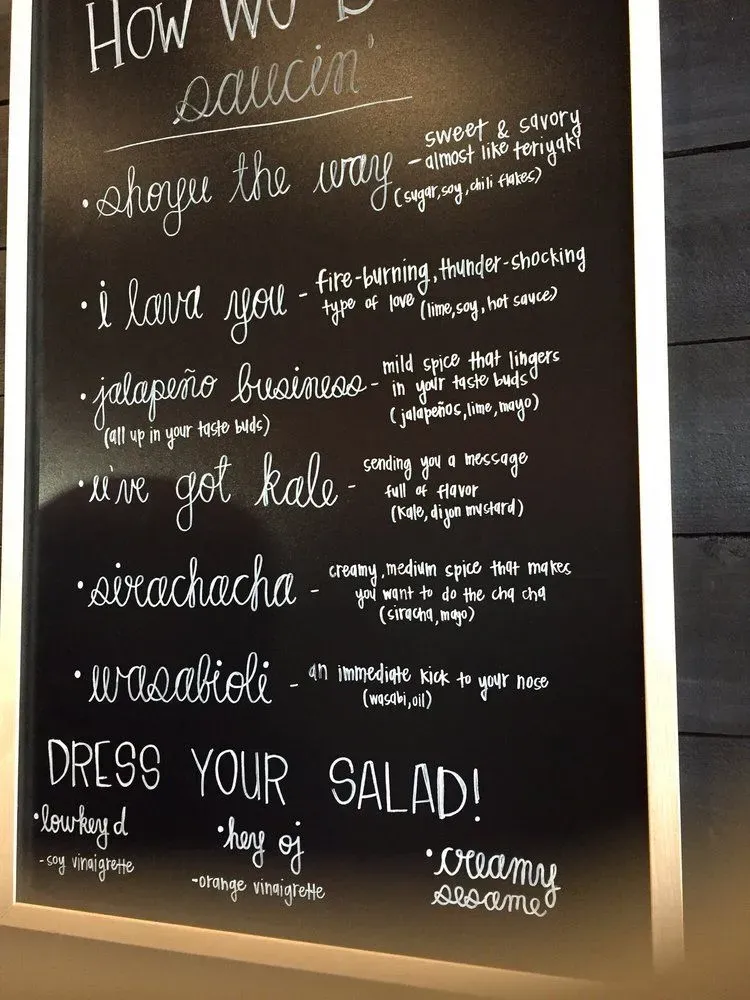 How We
saucin'
• shoyu the way - sweet & savory
- almost like teriyaki
(sugar, soy, chili flakes)
• i lava you - fire-burning, thunder-shocking
type of love (lime, soy, hot sauce)
• jalapeño business - mild spice that lingers
in your taste buds
(all up in your taste buds) (jalapeños, lime, mayo)
• u've got kale - sending you a message
full of flavor
(kale, dijon mustard)
• sirachacha - creamy, medium spice that makes
you want to do the cha cha
(siracha, mayo)
• wasabioli - an immediate kick to your nose
(wasabi, oil)
DRESS YOUR SALAD!
• lowkey d
- soy vinaigrette
• hey oj
- orange vinaigrette
• creamy
sesame